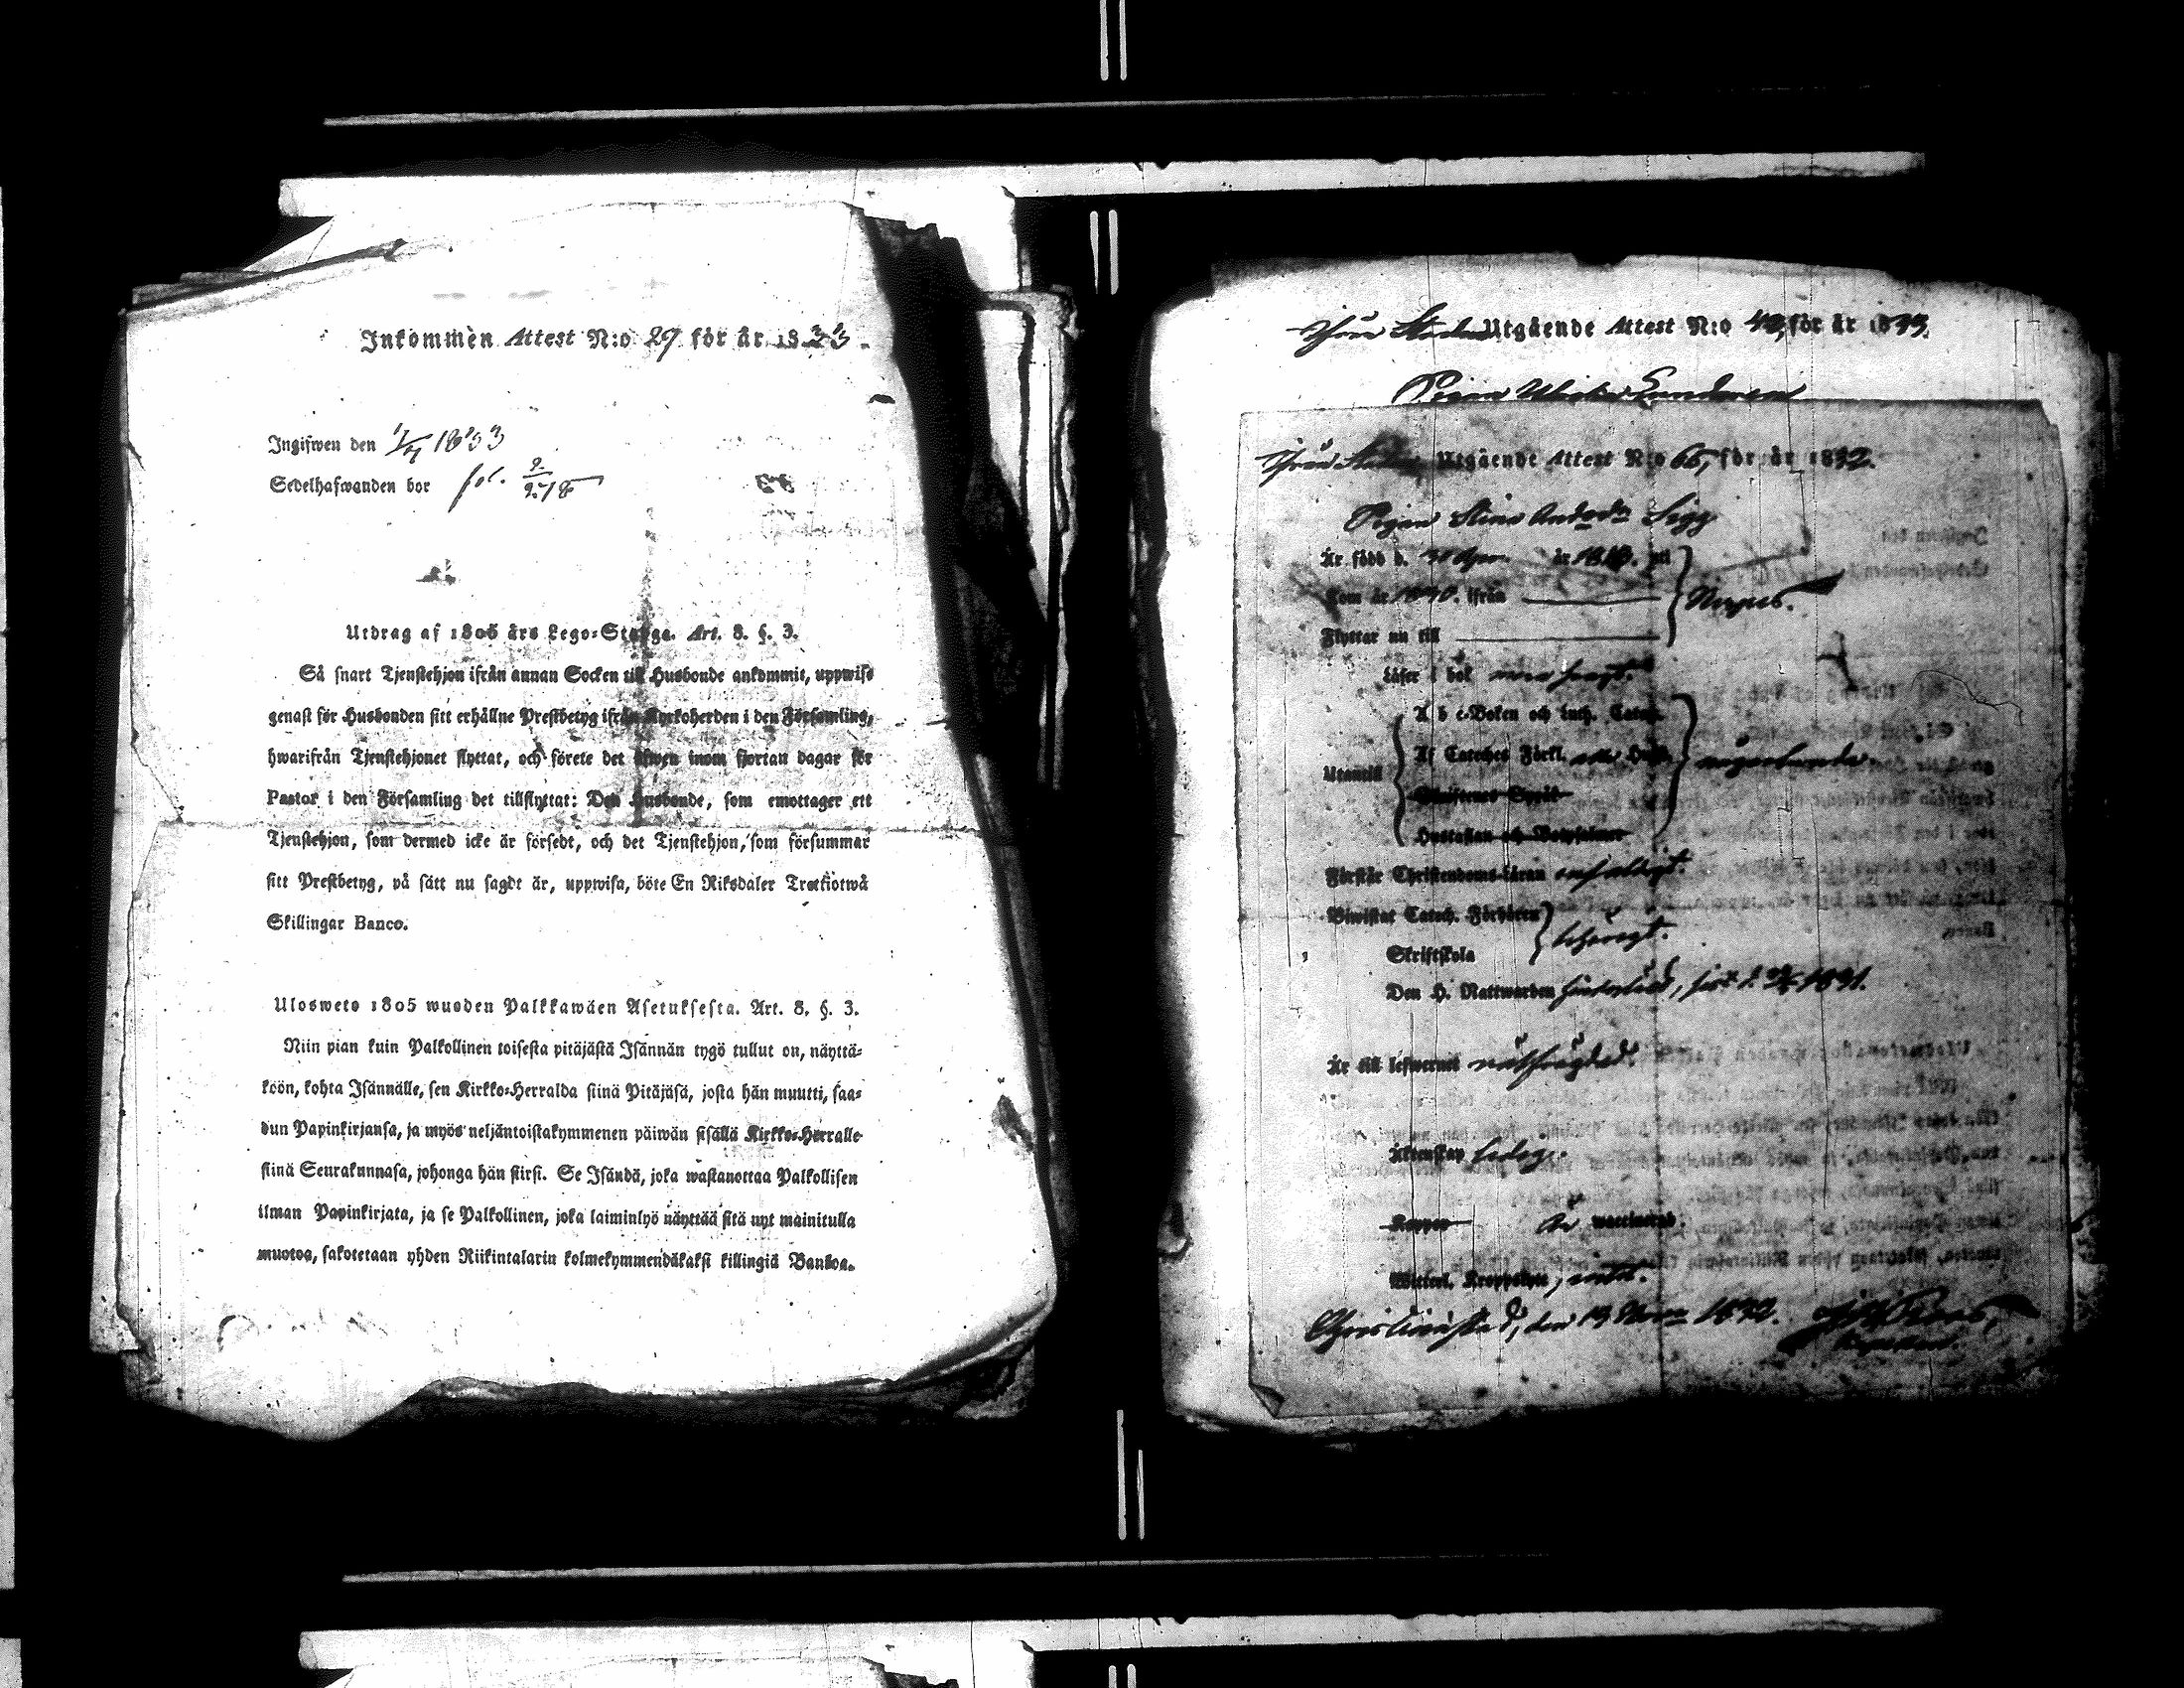 Inkommen Attest N:o 29 för år 1833.
Ingifwen den 1/7 1833
Sedelhafwanden bor fol. 2/278
Utdrag af 1805 års Lego-Stadga. Art. 8. §. 3.
Så snart Tjenstehjon ifrån annan Socken till Husbonde ankommit, uppwise
genast för Husbonden sitt erhållne Prestbetyg ifrån Kyrkoherden i den Församling,
hwarifrån Tjenstehjonet flyttat, och förete det äfwen inom fjortan dagar för
Pastor i den Församling det tillflyttat: Den Husbonde, som emottager ett
Tjenstehjon, som dermed icke är försedt, och det Tjenstehjon, som försummar
sitt Prestbetyg, på sätt nu sagdt är, uppwisa, böte En Riksdaler Trettiotwå
Skillingar Banco.
Ulosweto 1805 wuoden Palkkawäen Asetuksesta. Art. 8. §. 3.
Niin pian kuin Palkollinen toisesta pitäjästä Isännän tygö tullut on, näyttä-
köön, kohta Isännälle, sen Kirkko-Herralda siinä Pitäjäsä, josta hän muutti, saa-
dun Papinkirjansa, ja myös neljäntoistakymmenen päiwän sisällä Kirkko-Herralle
siinä Seurakunnasa, johonga hän siirsi. Se Isändä, joka wastanottaa Palkollisen
ilman Papinkirjata, ja se Palkollinen, joka laiminlyö näyttää sitä nyt mainitulla
muotoa, sakotetaan yhden Riikintalarin kolmekymmendäkaksi killingiä Bankoa.
Utgående Attest N:o för år 1833.
Pigan
Utgående Attest N:o 66, för år 1832.
Pigan Stina Andsdr Sigg
Är född d. år 1810. uti
Kom år ifrån
Närpes.
Flyttar nu till
Läser i bok
A b c-Boken och Luth. Catech.
Utantill
Af Cateches Förkl.
Skriftenes Språk
Hustaflan och Botpsalmer
Förstår Christendoms-läran enfaldigt.
Biwistat Catech. Förhören
Skriftskola
Den H. Nattwarden 1831.
Är till lefwernet
Äktenskap ledig.
Koppor Är waccinerad.
Witterl. Kroppslyte,
Christinæstad, den 13 Novr 1832.